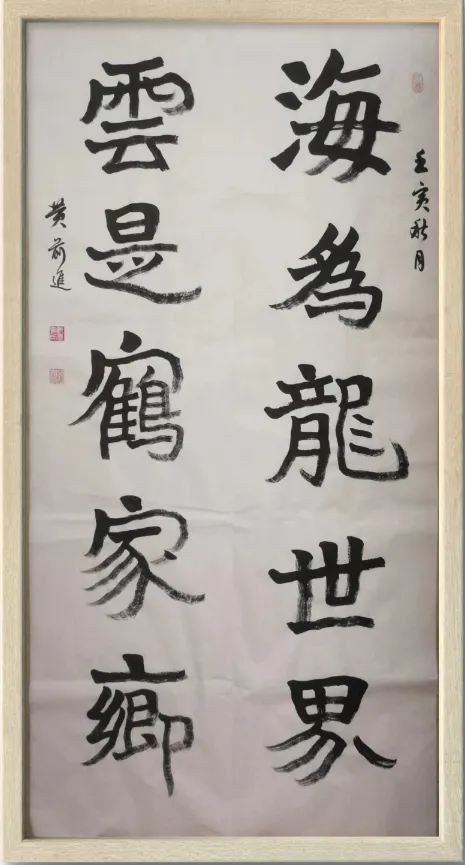 壬寅秋月
海為龍世界
雲是鶴家鄉
黄前進